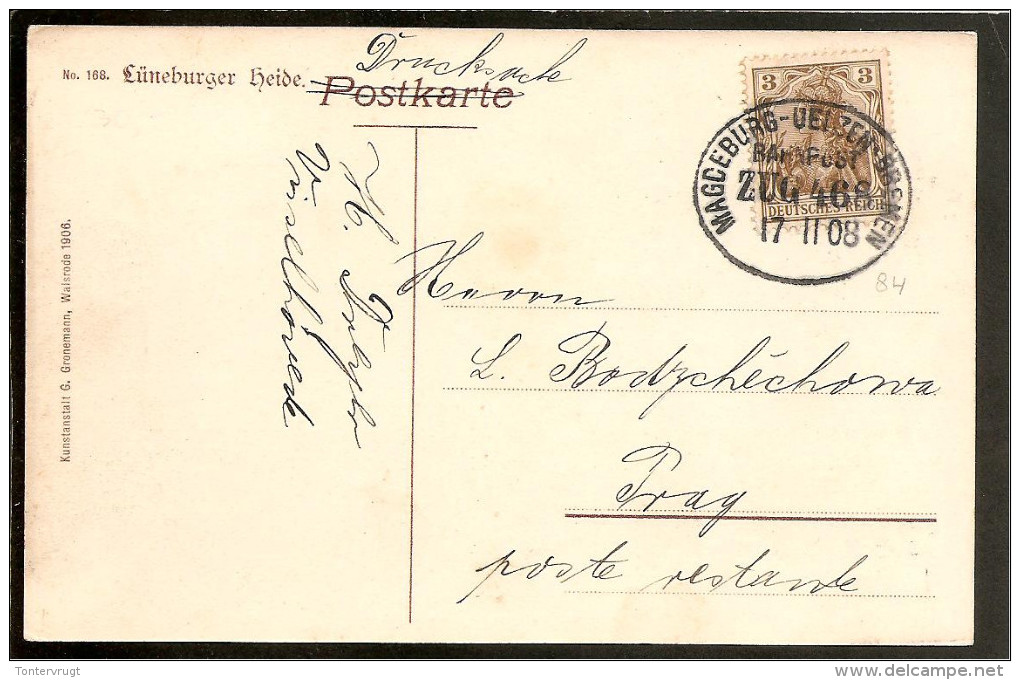 No. 168. Lüneburger Heide.
Drucksache
Postkarte
3 3
DEUTSCHES REICH
MAGDEBURG-UELZEN-BREMEN
BAHNPOST
ZUG 468
17 11 08
84
Herrn
L. Bodzchéchowa
Prag
poste restante
H.
Visselhövede
Kunstanstalt G. Gronemann, Walsrode 1906.
Tontervrugt
delcampe.net